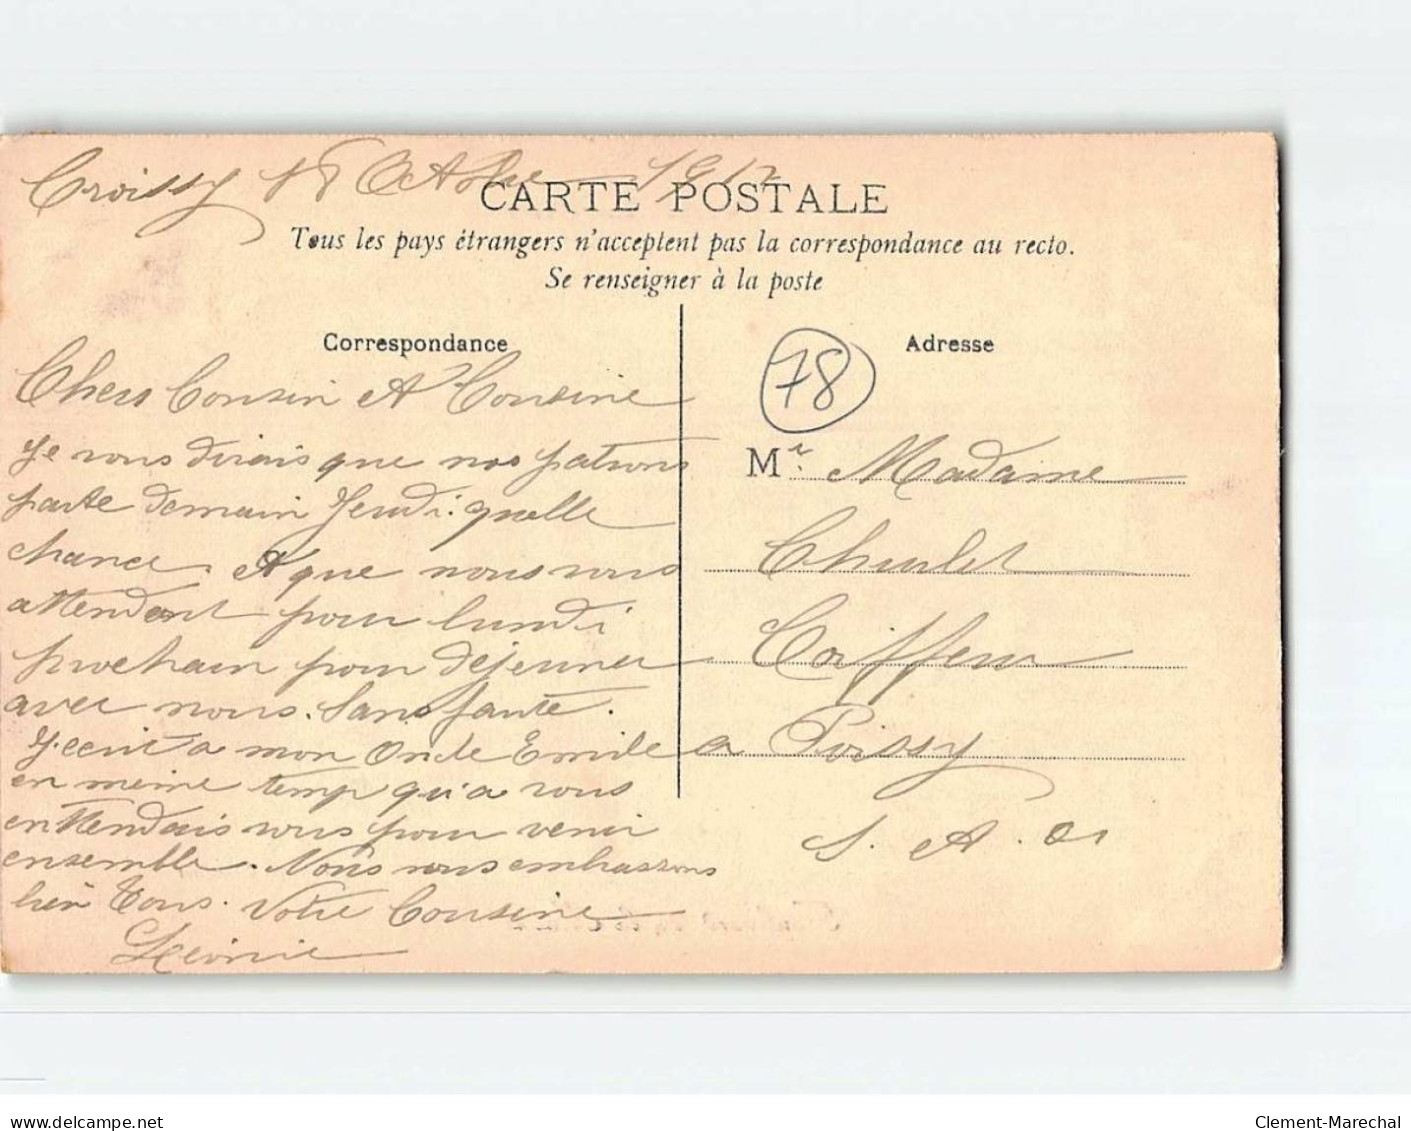 Croissy Octobre 1912
CARTE POSTALE
Tous les pays étrangers n'acceptent pas la correspondance au recto.
Se renseigner à la poste
Correspondance
Chers Cousin et Cousine
Je vous dirais que nos patrons
parte demain Jeudi. quelle
chance. et que nous vous
attendont pour lundi
prochain pour déjeuner
avec nous. Sans faute.
J'ecrit a mon Oncle Emile
en meme temp qu'a vous
enttendais vous pour venir
ensemble. Nous vous embrassons
bien Tous. Votre Cousine
Léonie
Adresse
78
Mr. Madame
Coiffeur
a Poissy
S. et. O.
www.delcampe.net
Clement-Marechal